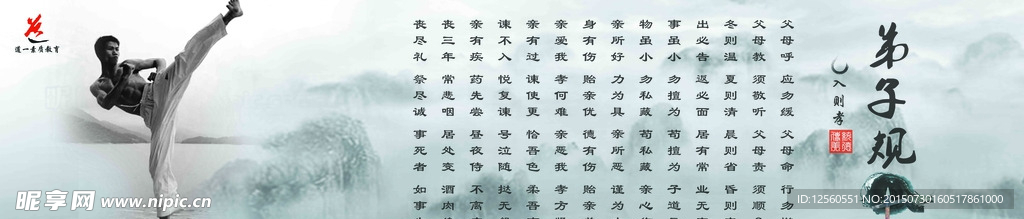 弟子规
入则孝
父母呼应勿缓父母命行勿
父母教须敬听父母责须顺
冬则温夏则清晨则省昏则
出必告返必面居有常业无
事虽小勿擅为苟擅为子道
物虽小勿私藏苟私藏亲心
亲所好力为具亲所恶谨为
身有伤贻亲忧德有伤贻亲
亲爱我孝何难亲恶我孝方
亲有过谏使更怡吾色柔吾
谏不入悦复谏号泣随挞无
亲有疾药先尝昼夜侍不离
丧三年常悲咽居处变酒肉
丧尽礼祭尽诚事死者如事
道一素质教育
昵享网 www.nipic.cn
ID:12560551 NO:20150730160517861000